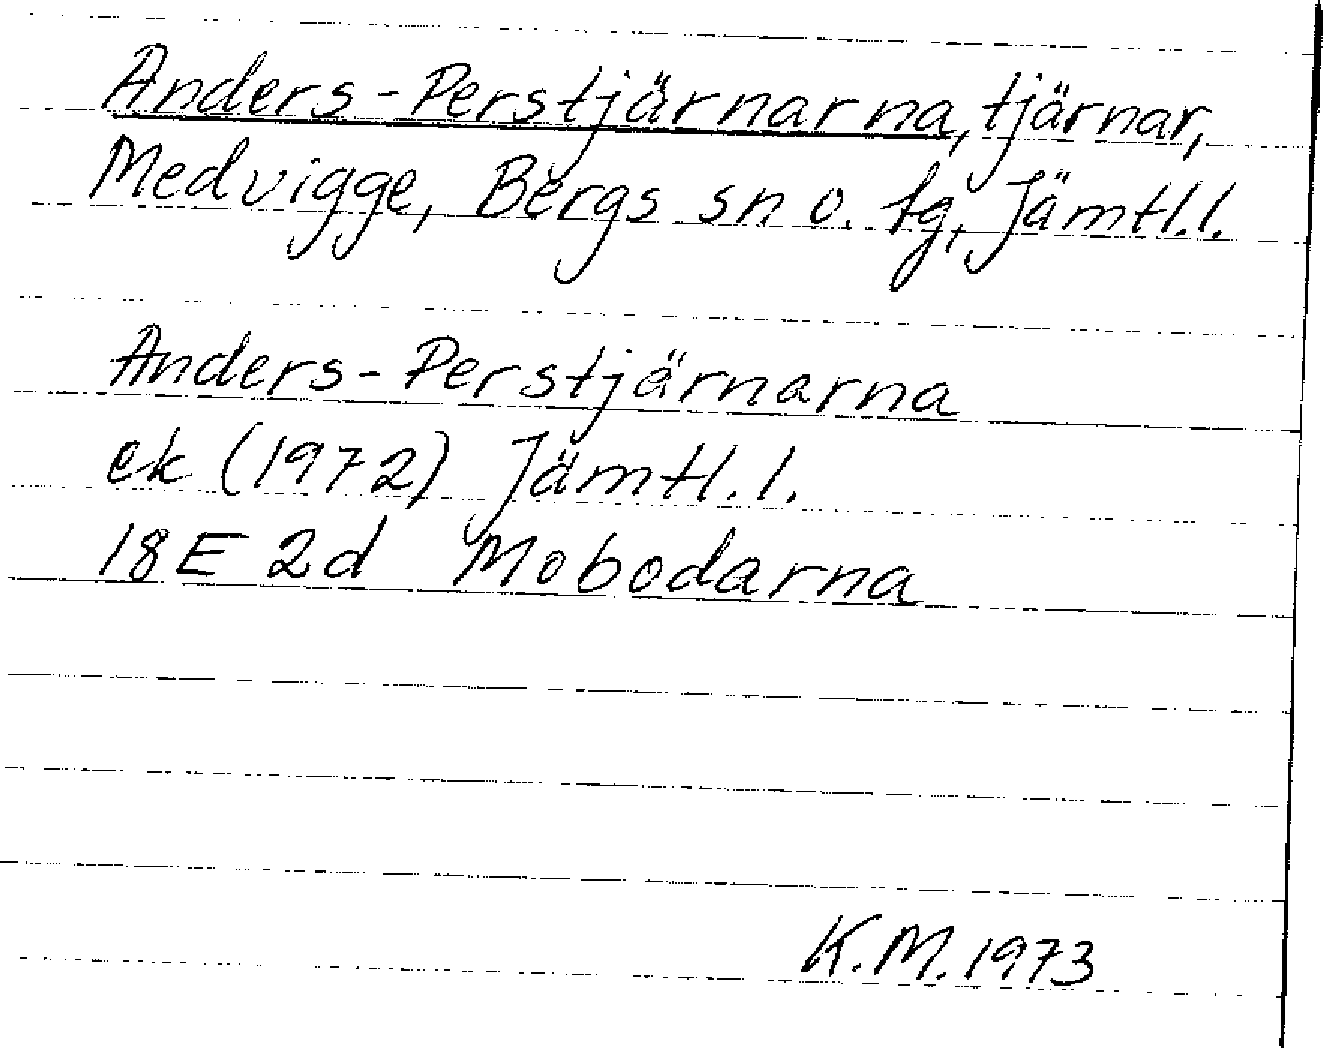 Anders-Perstjärnarna, tjärnar,
Medvigge, Bergs sn o. tg, Jämtl.l.
Anders-Perstjärnarna
ek (1972) Jämtl.l.
18E 2d Mobodarna
K.M. 1973